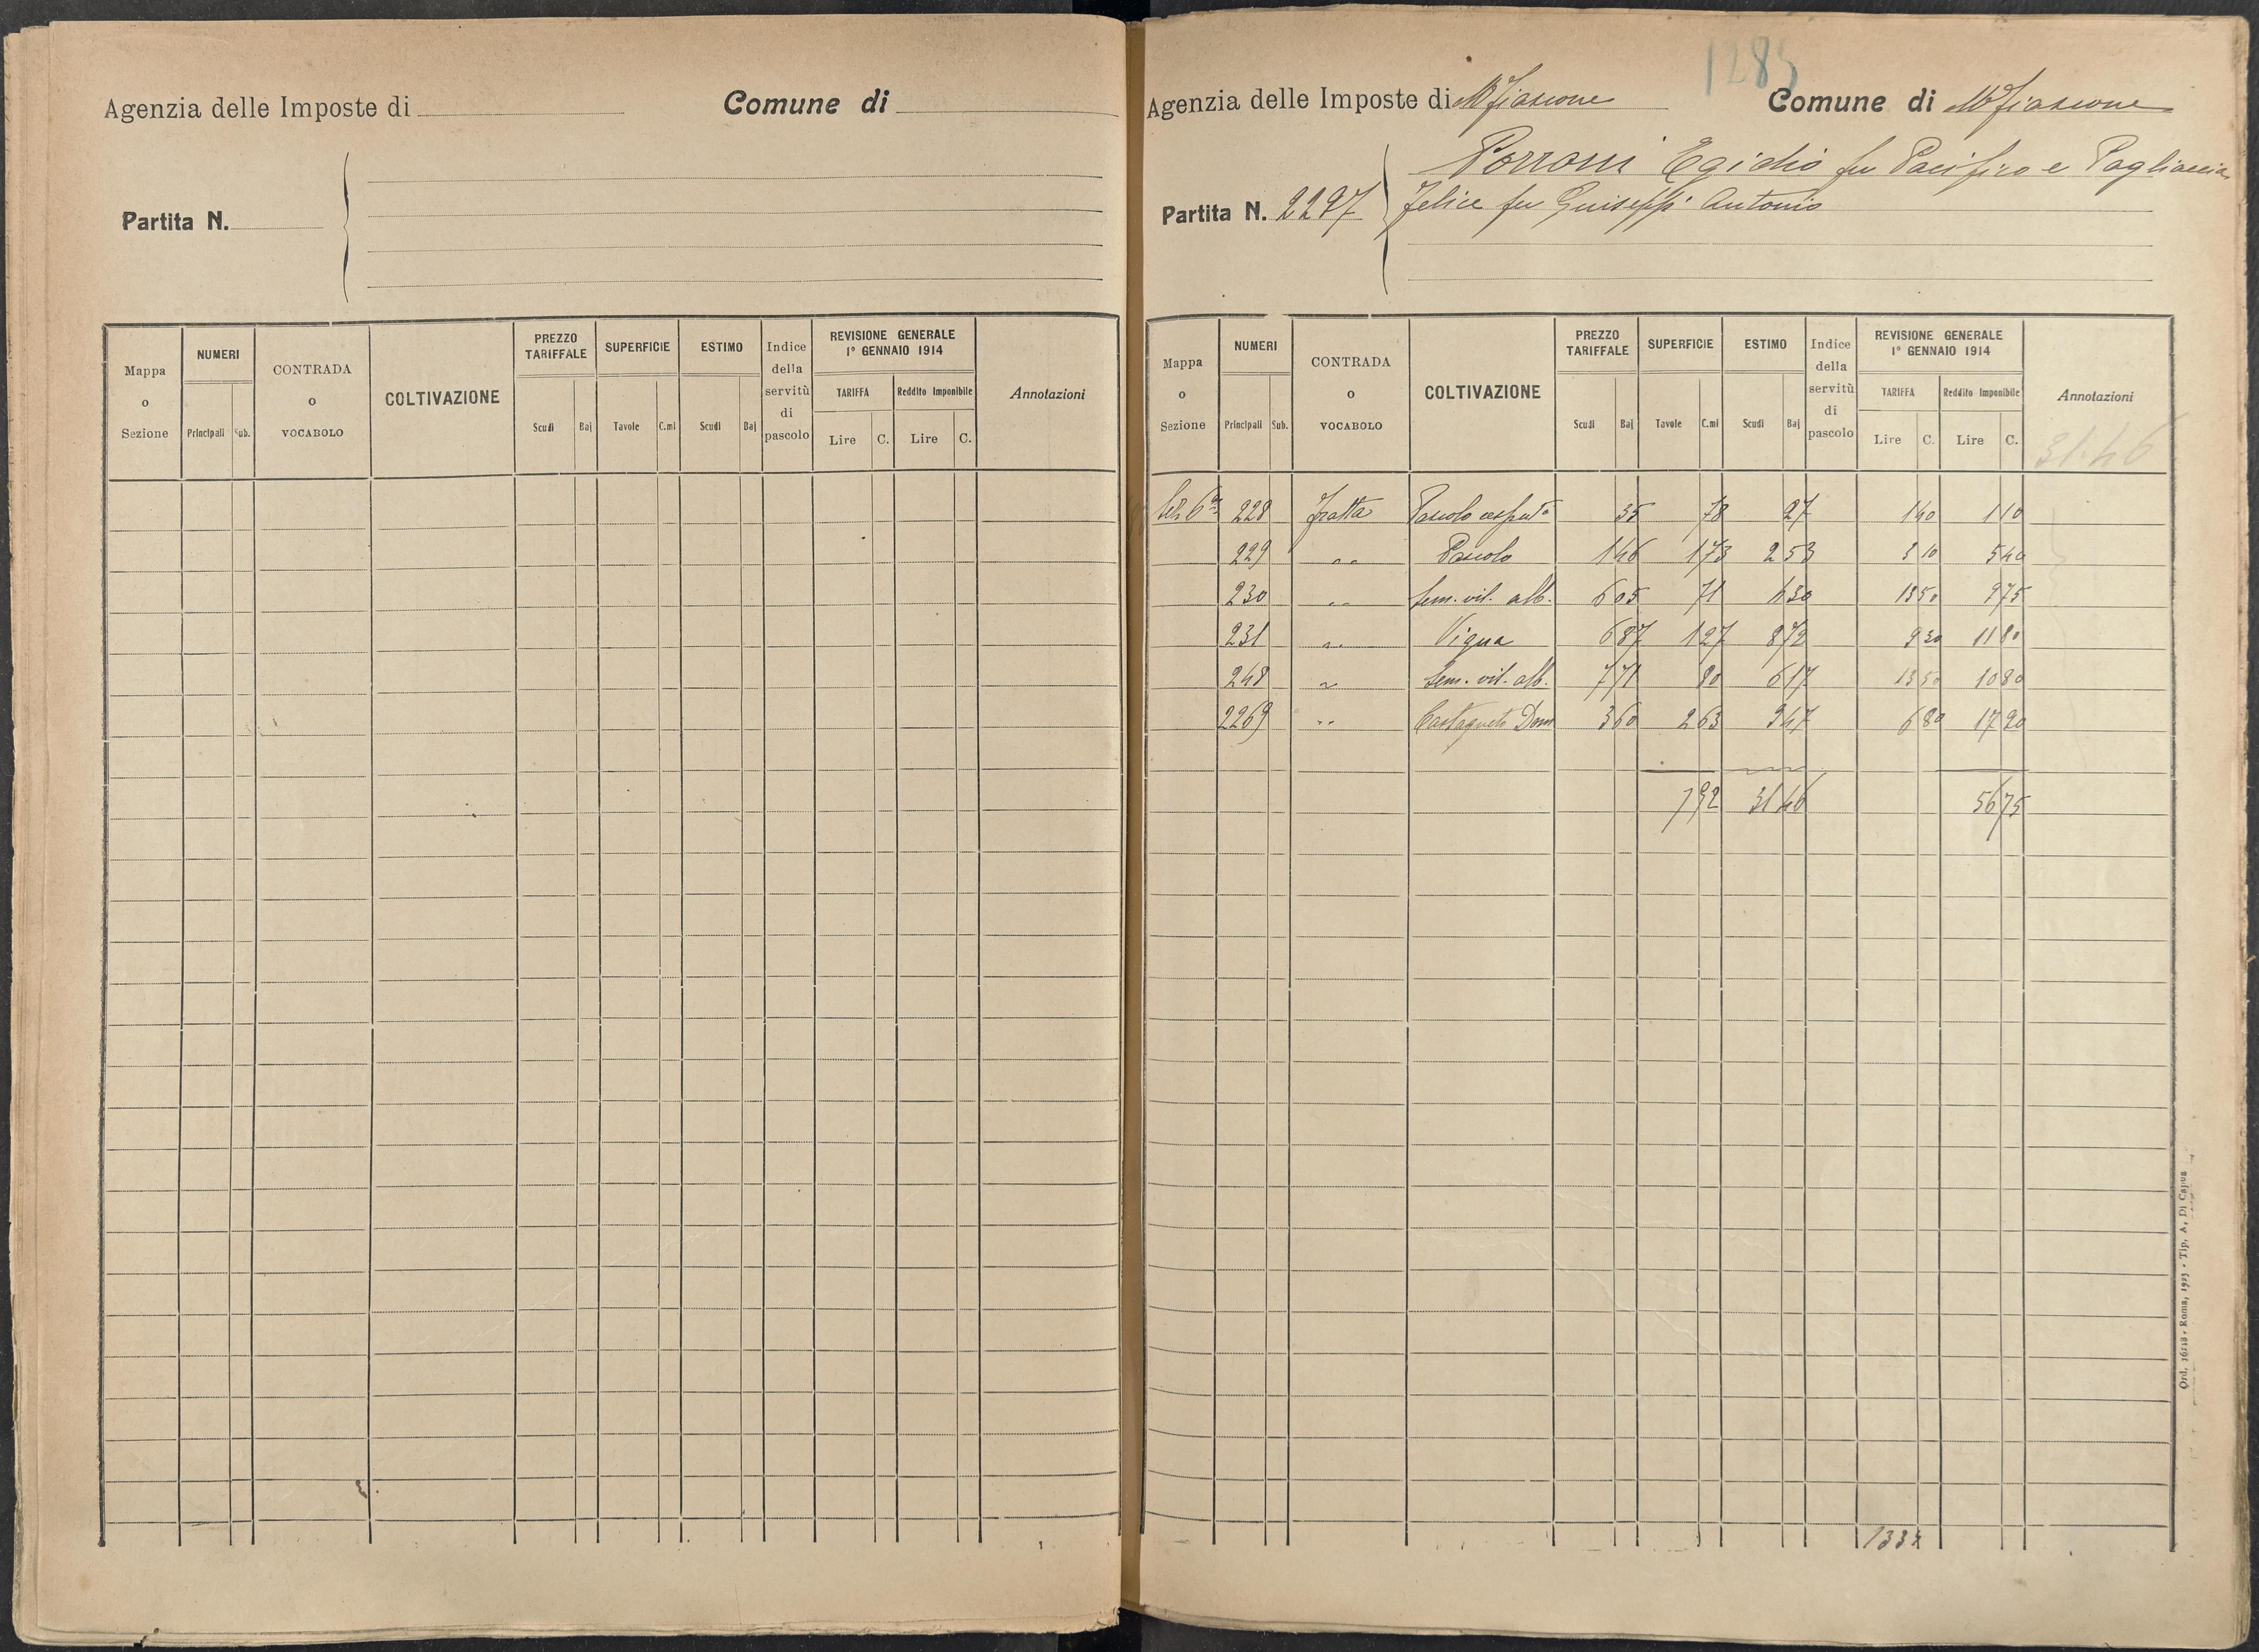 Agenzia delle Imposte di
Comune di
Partita N.
Mappa o Sezione
NUMERI
Principali
Sub.
CONTRADA o VOCABOLO
COLTIVAZIONE
PREZZO TARIFFALE
Scudi
Baj
SUPERFICIE
Tavole
C.mi
ESTIMO
Scudi
Baj
Indice della servitù di pascolo
REVISIONE GENERALE
1° GENNAIO 1914
TARIFFA
Lire
C.
Reddito Imponibile
Lire
C.
Annotazioni
1285
Agenzia delle Imposte di Mfiascone
Comune di Mfiascone
Partita N. 2297
Porroni Egidio fu Pacifico e Pagliaccia
Felice fu Guiseppi Antonio
Mappa o Sezione
NUMERI
Principali
Sub.
CONTRADA o VOCABOLO
COLTIVAZIONE
PREZZO TARIFFALE
Scudi
Baj
SUPERFICIE
Tavole
C.mi
ESTIMO
Scudi
Baj
Indice della servitù di pascolo
REVISIONE GENERALE
1° GENNAIO 1914
TARIFFA
Lire
C.
Reddito Imponibile
Lire
C.
Annotazioni
31.46
6ª 228 Fratta Pascolo cesputo 35 78 27 1 40 1 10
229 " " Pascolo 1 46 1 73 2 53 3 10 5 40
230 " " Sem. vit. alb. 6 05 71 4 30 13 50 9 75
231 " " Vigna 6 87 1 27 8 72 9 30 11 80
248 " Sem. vit. alb. 7 71 80 6 17 13 50 10 80
2269 " " Castagneto Dom 3 60 2 63 9 47 6 80 17 90
7 92 31 46 56 75
1334
Ord. 16118 - Roma, 1923 - Tip. A. Di Capua